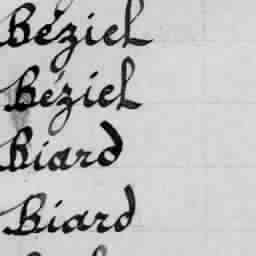 Béziel
Béziel
Biard
Biard